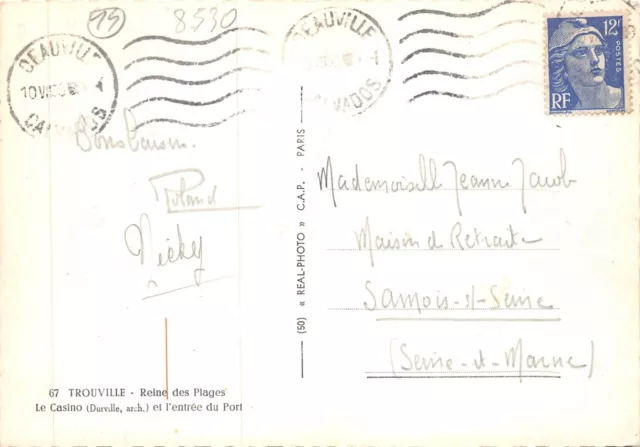 15
8530
DEAUVILLE
CALVADOS
DEAUVILLE
CALVADOS
12F
POSTES
RF
Bons baisers
Roland
Nicky
(50) « REAL-PHOTO » C.A.P. - PARIS
Mademoiselle Jeanne Jacob
Maison de Retraite
Samois-s/-Seine
(Seine-et-Marne)
67 TROUVILLE - Reine des Plages
Le Casino (Durville, arch.) et l'entrée du Port